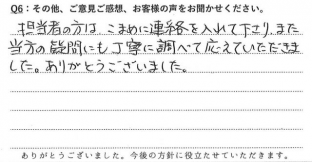 Q6：その他、ご意見ご感想、お客様の声をお聞かせください。
担当者の方は こまめに連絡を入れて下さり、また
当方の疑問にも丁寧に調べて応えていただきま
した。ありがとうございました。
ありがとうございました。今後の方針に役立たせていただきます。